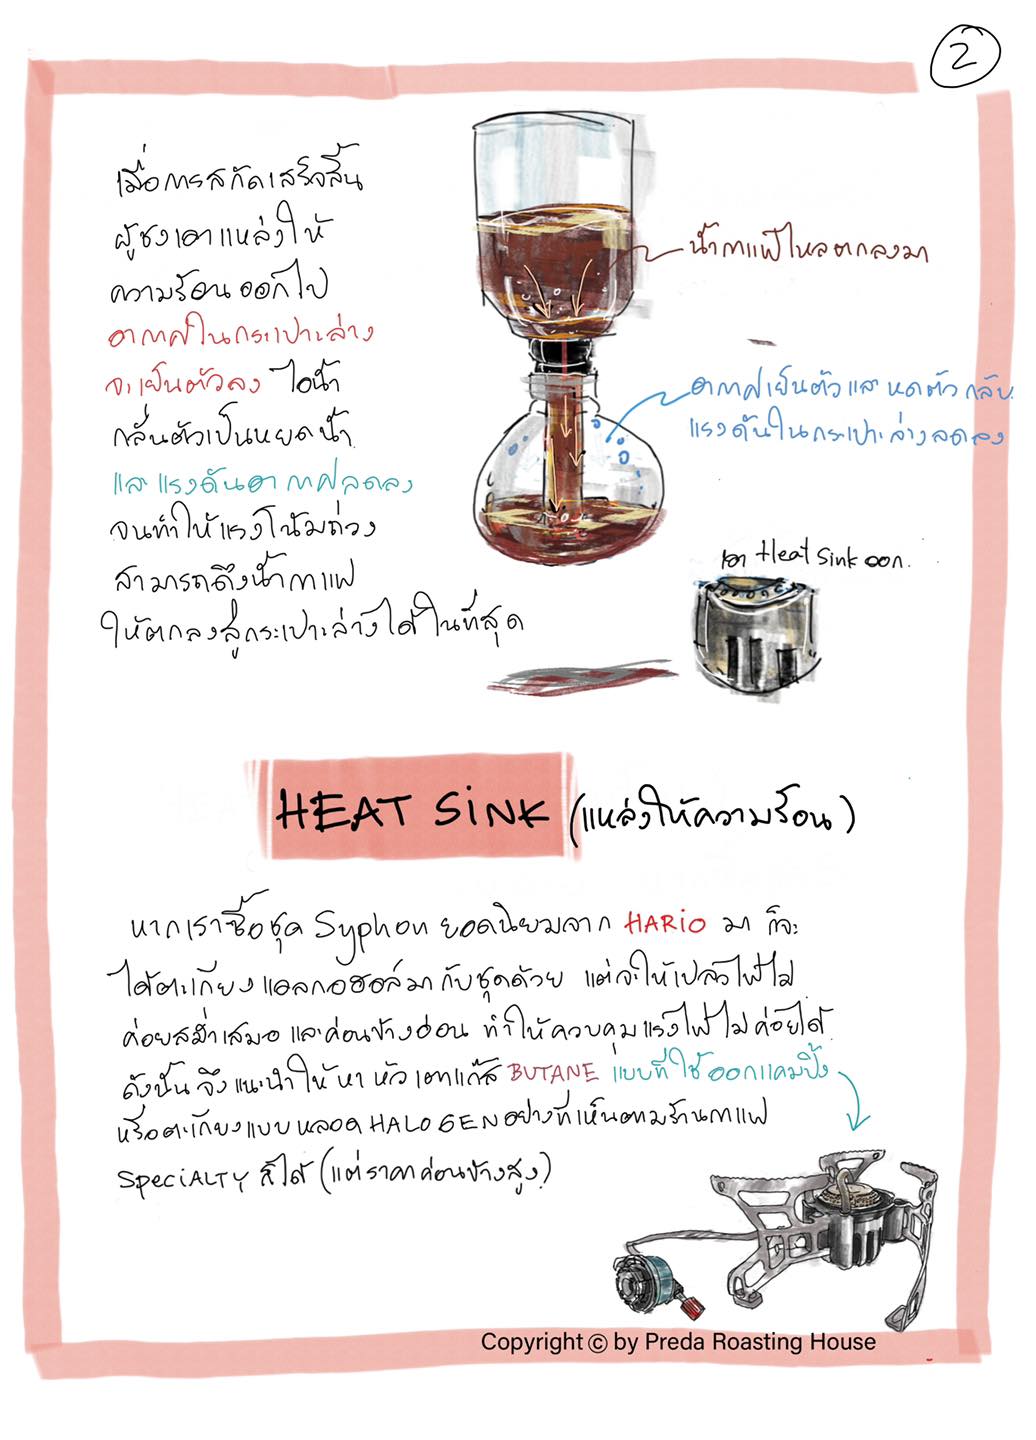 2
เมื่อการสกัดเสร็จสิ้น
ผู้ชงเอาแหล่งให้
ความร้อนออกไป
อากาศในกระเปาะล่าง
จะเย็นตัวลง ไอน้ำ
กลั่นตัวเป็นหยดน้ำ
และแรงดันอากาศลดลง
จนทำให้แรงโน้มถ่วง
สามารถดึงน้ำกาแฟ
ให้ตกลงสู่กระเปาะล่างได้ในที่สุด
น้ำกาแฟไหลตกลงมา
อากาศเย็นตัวและหดตัวกลับ
แรงดันในกระเปาะล่างลดลง
เอา Heat Sink ออก.
HEAT SINK (แหล่งให้ความร้อน)
หากเราซื้อชุด Syphon ยอดนิยมจาก HARIO มา ก็จะ
ได้ตะเกียงแอลกอฮอล์มากับชุดด้วย แต่จะให้เปลวไฟไม่
ค่อยสม่ำเสมอ และค่อนข้างอ่อน ทำให้ควบคุมแรงไฟไม่ค่อยได้
ดังนั้น จึงแนะนำให้หา หัวเตาแก๊ส BUTANE แบบที่ใช้ออกแคมปิ้ง
หรือตะเกียงแบบหลอด HALOGEN อย่างที่เห็นตามร้านกาแฟ
SPECIALTY ก็ได้ (แต่ราคาค่อนข้างสูง)
Copyright © by Preda Roasting House